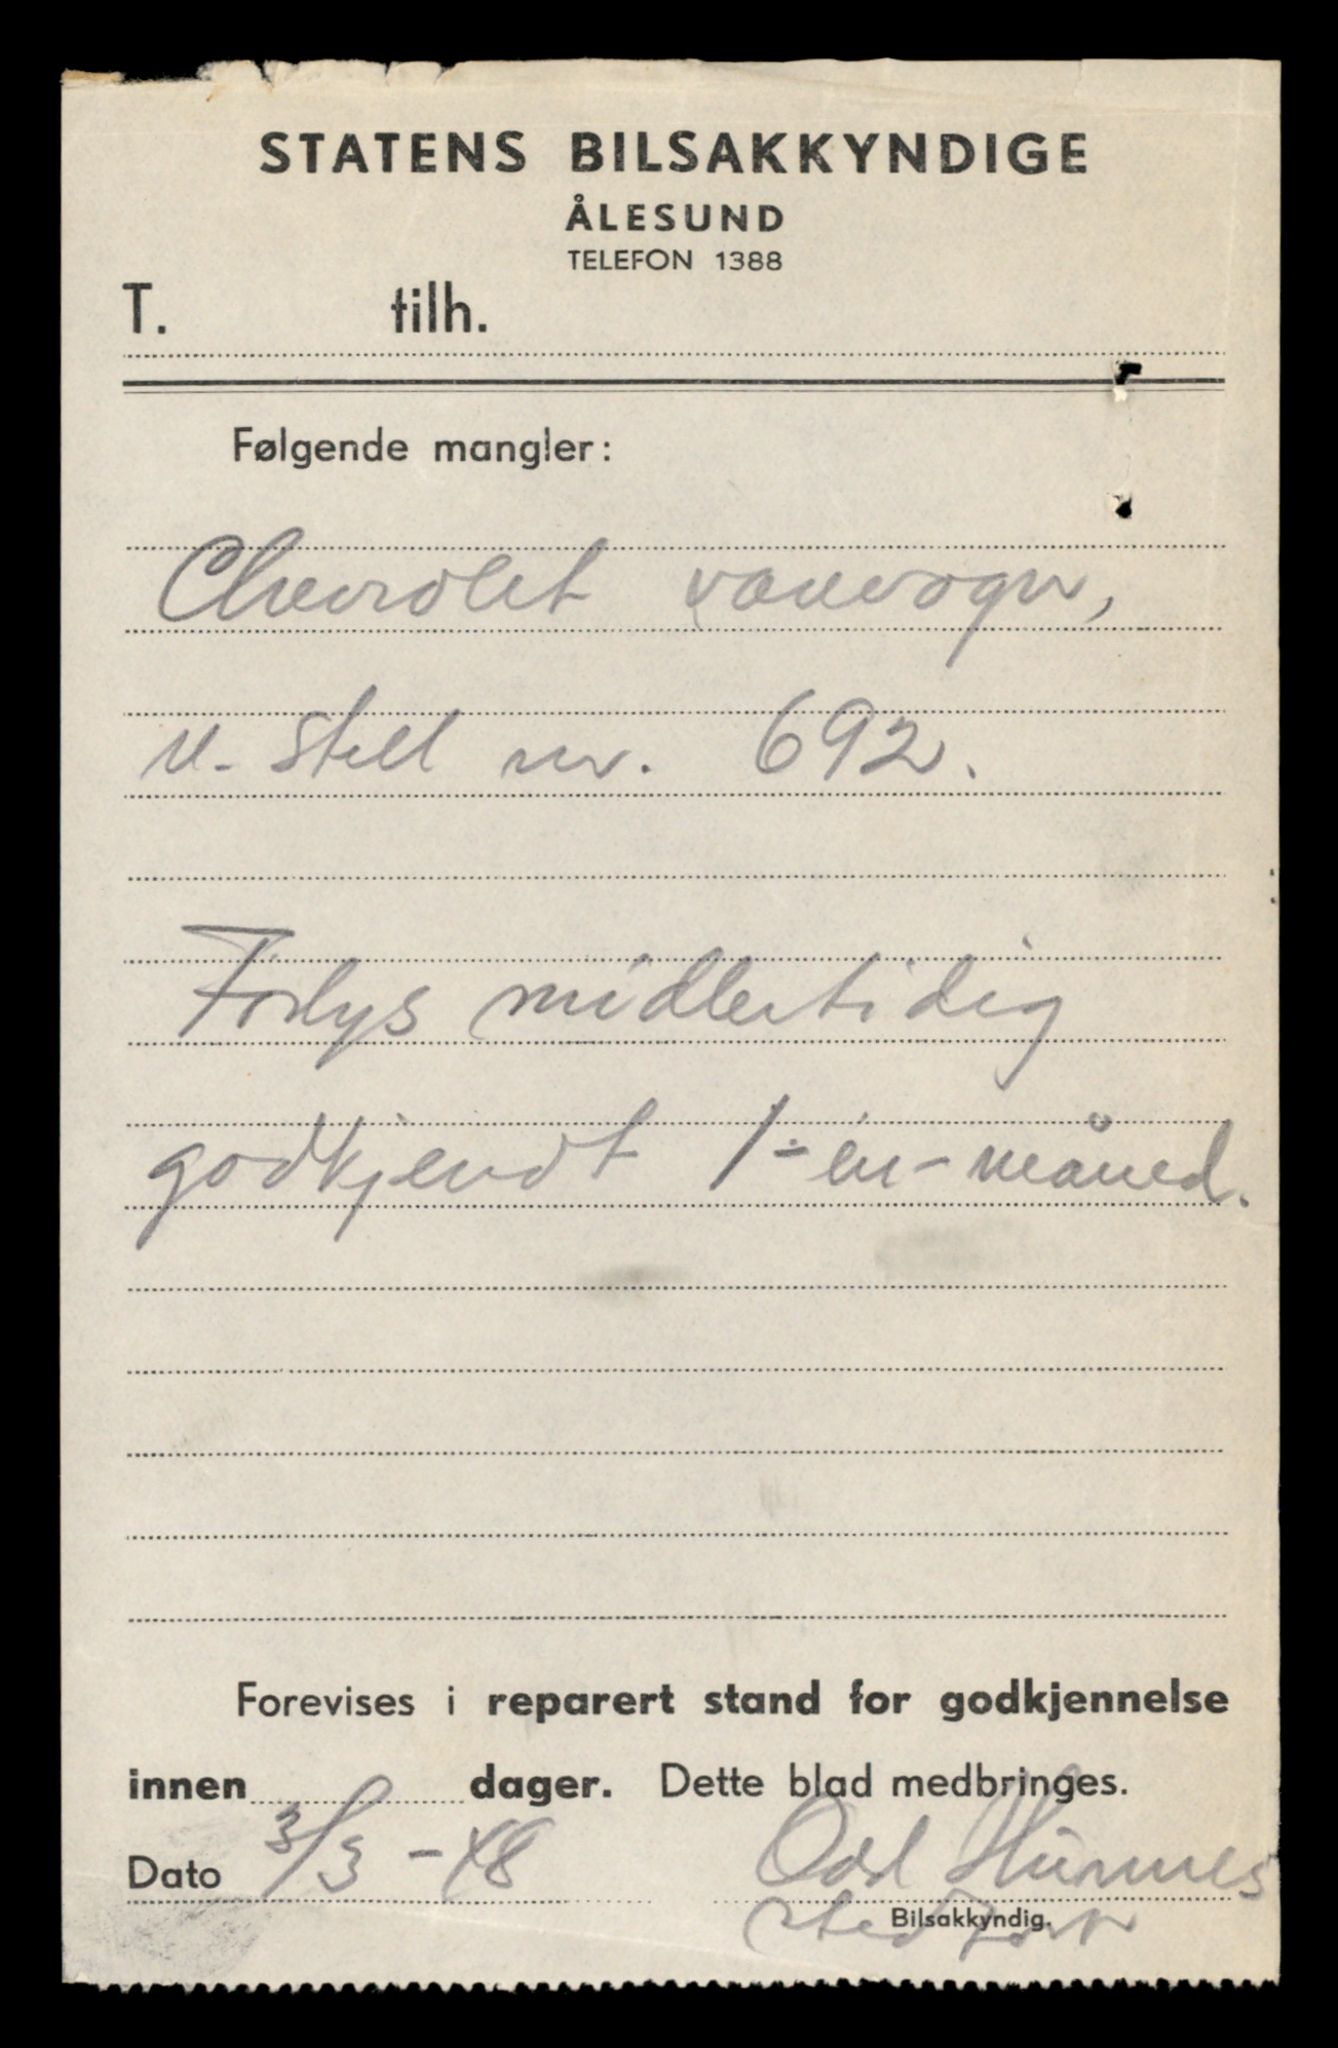 STATENS BILSAKKYNDIGE
ÅLESUND
TELEFON 1388
T. tilh.
Følgende mangler:
Chevrolet varevogn,
stell nr. 692.
Forlys midlertidig
godkjendt 1-en-måned.
Forevises i reparert stand for godkjennelse
innen dager. Dette blad medbringes.
Dato 3/3-48 Odd Hunnes
Bilsakkyndig.